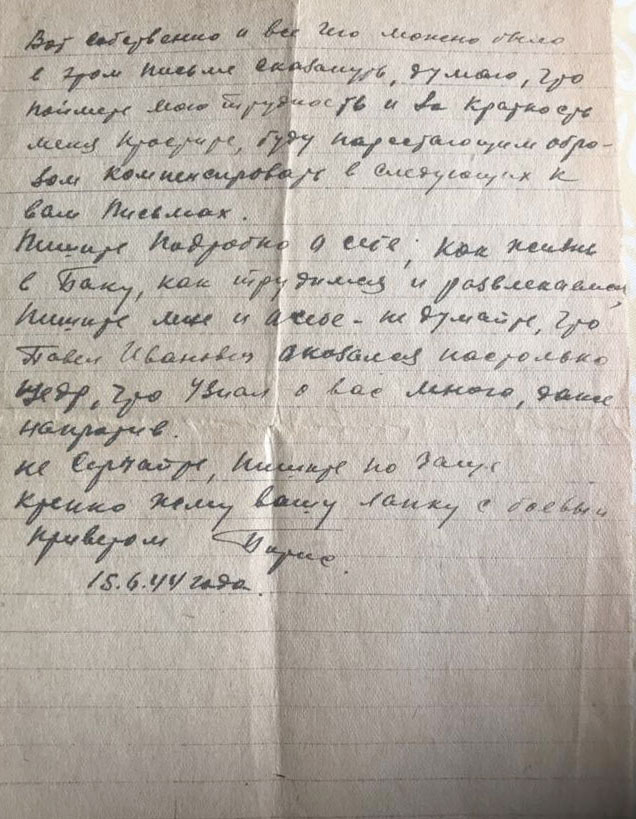 Вот собственно и все что можно было
в этом письме сказануть, думаю, что
поймете мою трудность и за краткость
меня простите, буду нарастающим обра-
зом компенсировать в следующих к
вам письмах.
Пишите подробно о себе, как жизнь
в Баку, как трудимся и развлекаемся,
Пишите мне и о себе - не думайте, что
Павел Иванович оказался настолько
щедр, что узнал о вас много, даже
напротив.
не серчайте, пишите по чаще
крепко жму вашу лапку с боевым
приветом
15.6.44 года.